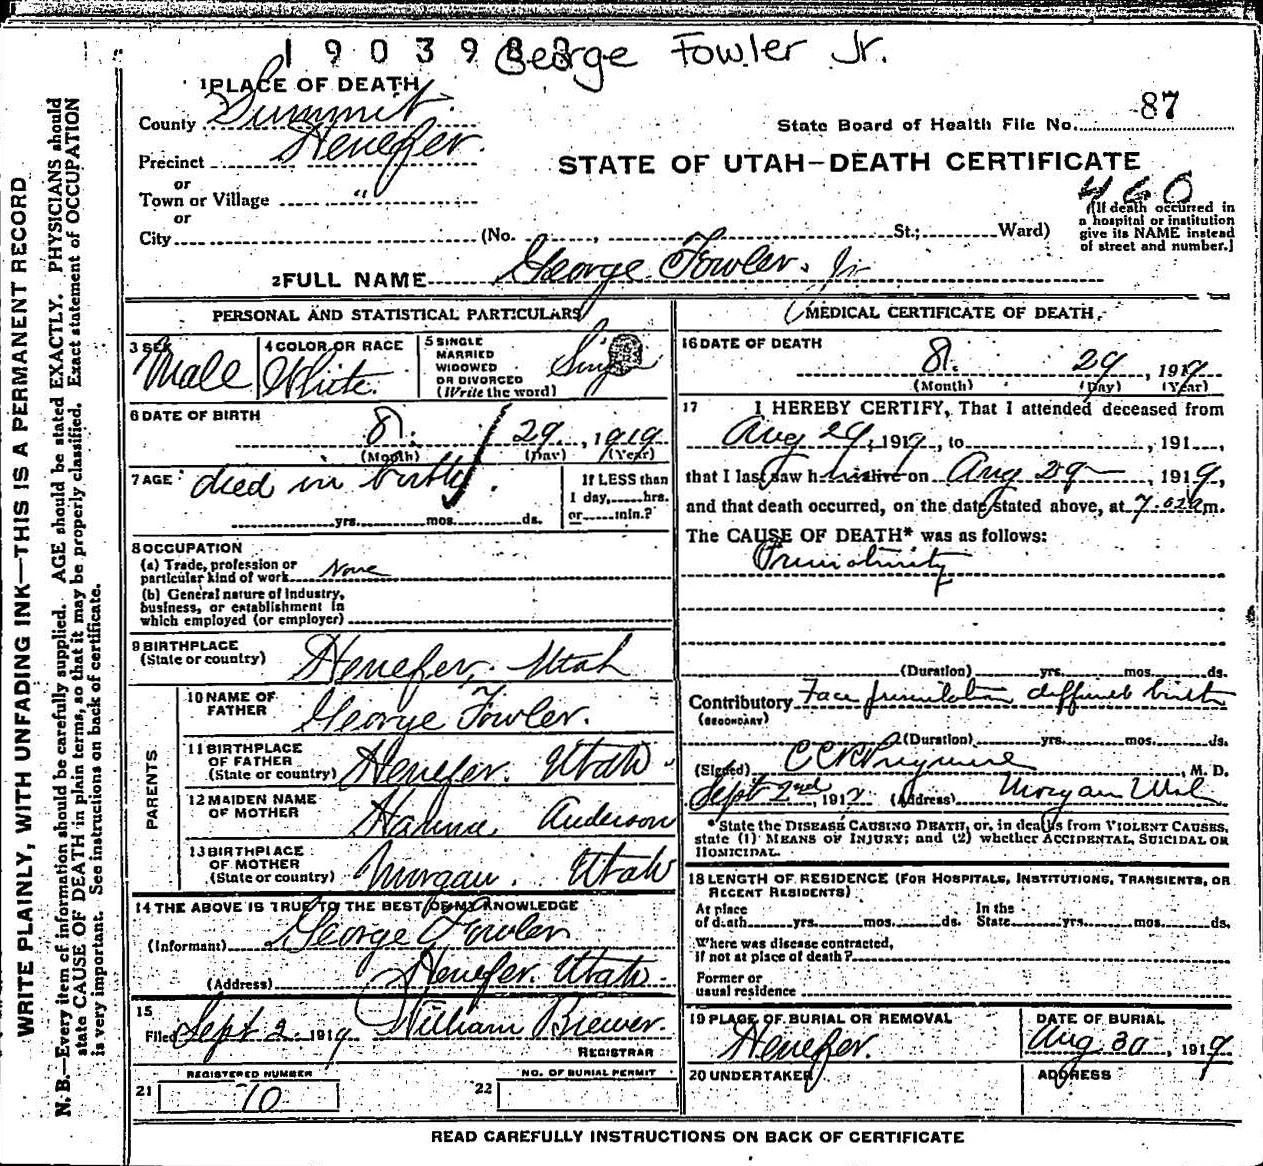 George Fowler Jr.
1 PLACE OF DEATH
County Summit.
Precinct Henefer.
State Board of Health File No. 87
STATE OF UTAH—DEATH CERTIFICATE
or
Town or Village "
or
City (No. , St.; Ward)
460
[If death occurred in
a hospital or institution
give its NAME instead
of street and number.]
2 FULL NAME George Fowler. Jr
PERSONAL AND STATISTICAL PARTICULARS
3 SEX
Male
4 COLOR OR RACE
White.
5 SINGLE
MARRIED
WIDOWED
OR DIVORCED
(Write the word)
6 DATE OF BIRTH
8. 29, 1919
(Month) (Day) (Year)
7 AGE died in birth.
yrs. mos. ds.
If LESS than
1 day, hrs.
or min.?
8 OCCUPATION
(a) Trade, profession or
particular kind of work None
(b) General nature of industry,
business, or establishment in
which employed (or employer)
9 BIRTHPLACE
(State or country) Henefer, Utah
PARENTS
10 NAME OF
FATHER George Fowler.
11 BIRTHPLACE
OF FATHER
(State or country) Henefer. Utah.
12 MAIDEN NAME
OF MOTHER Hanna. Anderson
13 BIRTHPLACE
OF MOTHER
(State or country) Morgan. Utah
14 THE ABOVE IS TRUE TO THE BEST OF MY KNOWLEDGE
(Informant) George Fowler
(Address) Henefer. Utah.
15
Filed Sept 2. 1919 William Brewer.
REGISTRAR
21 REGISTERED NUMBER
10
22 NO. OF BURIAL PERMIT
MEDICAL CERTIFICATE OF DEATH
16 DATE OF DEATH
8. 29, 1919
(Month) (Day) (Year)
17 I HEREBY CERTIFY, That I attended deceased from
Aug 29, 1919, to , 191 ,
that I last saw h alive on Aug 29 , 1919,
and that death occurred, on the date stated above, at m.
The CAUSE OF DEATH* was as follows:
(Duration) yrs. mos. ds.
Contributory Face presentation difficult birth
(SECONDARY)
(Duration) yrs. mos. ds.
(Signed) , M. D.
Sept 2nd, 191 (Address) Morgan
*State the DISEASE CAUSING DEATH, or, in deaths from VIOLENT CAUSES,
state (1) MEANS OF INJURY; and (2) whether ACCIDENTAL, SUICIDAL OR
HOMICIDAL.
18 LENGTH OF RESIDENCE (FOR HOSPITALS, INSTITUTIONS, TRANSIENTS, OR
RECENT RESIDENTS)
At place
of death yrs. mos. ds.
In the
State yrs. mos. ds.
Where was disease contracted,
if not at place of death?
Former or
usual residence
19 PLACE OF BURIAL OR REMOVAL
Henefer.
DATE OF BURIAL
Aug 30, 1919
20 UNDERTAKER
ADDRESS
READ CAREFULLY INSTRUCTIONS ON BACK OF CERTIFICATE
WRITE PLAINLY, WITH UNFADING INK—THIS IS A PERMANENT RECORD
N. B.—Every item of information should be carefully supplied. AGE should be stated EXACTLY. PHYSICIANS should
state CAUSE OF DEATH in plain terms, so that it may be properly classified. Exact statement of OCCUPATION
is very important. See instructions on back of certificate.